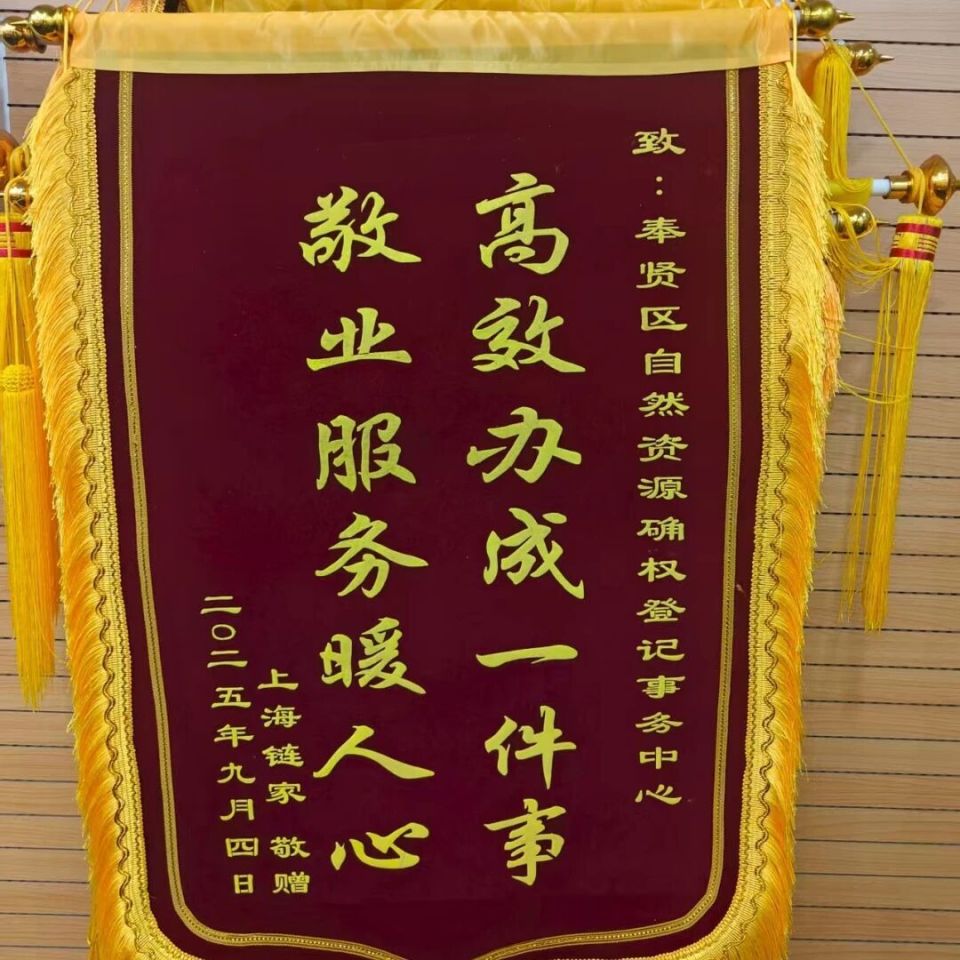 致：奉贤区自然资源确权登记事务中心
高效办成一件事
敬业服务暖人心
上海链家 敬赠
二〇二五年九月四日